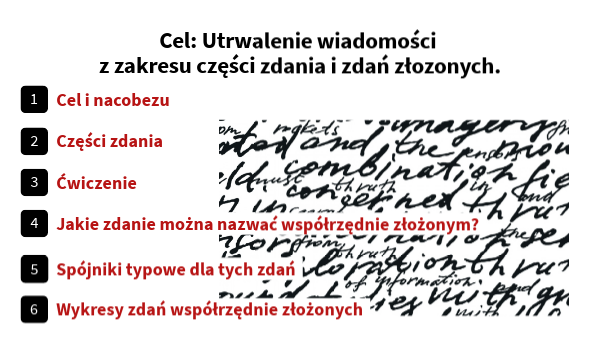 Cel: Utrwalenie wiadomości
z zakresu części zdania i zdań złozonych.
1 Cel i nacobezu
2 Części zdania
3 Ćwiczenie
4 Jakie zdanie można nazwać współrzędnie złożonym?
5 Spójniki typowe dla tych zdań
6 Wykresy zdań współrzędnie złożonych
and the
combination
concerned thru
of information